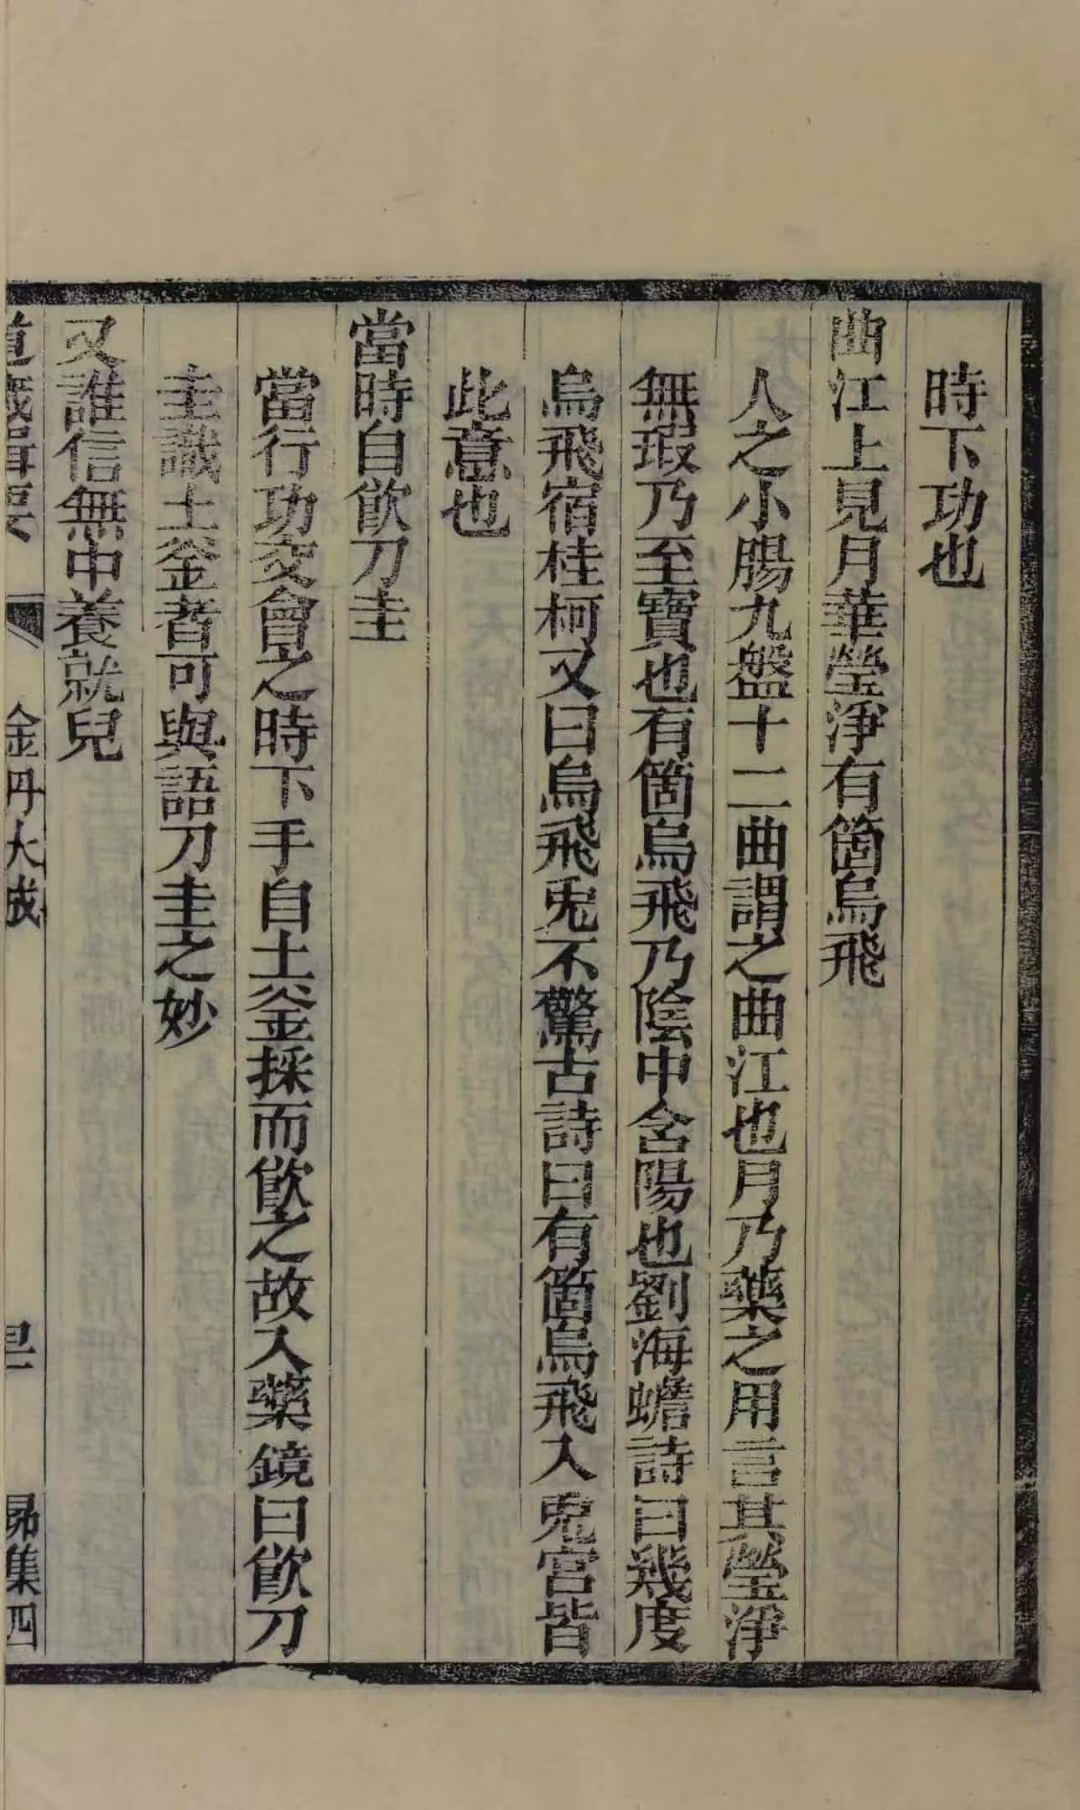 時下功也
曲江上見月華瑩淨有箇烏飛
人之小腸九盤十二曲謂之曲江也月乃藥之用言其瑩淨
無瑕乃至寶也有箇烏飛乃陰中含陽也劉海蟾詩曰幾度
烏飛宿桂柯又曰烏飛兎不驚古詩曰有箇烏飛入兎宮皆
此意也
當時自飲刀圭
當行功交會之時下手自土釡採而飲之故入藥鏡曰飲刀
圭識土釡者可與語刀圭之妙
又誰信無中養就兒
道藏輯要 金丹大成 昴集四